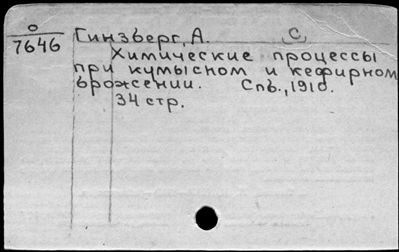 о
7646
Гинзберг, А. С.
Химические процессы
при кумысном и кефирном
брожении. Спб., 1910.
34 стр.